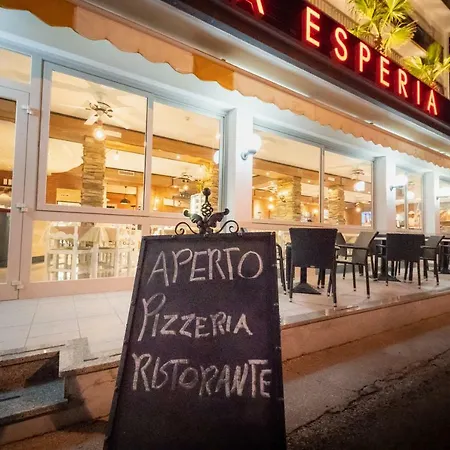 A ESPERIA
APERTO
PIZZERIA
RISTORANTE